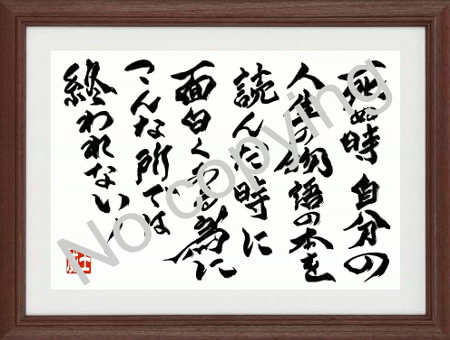 死ぬ時 自分の
人生の物語の本を
読んだ時に
面白くある為に
こんな所では
終われない!
No copying